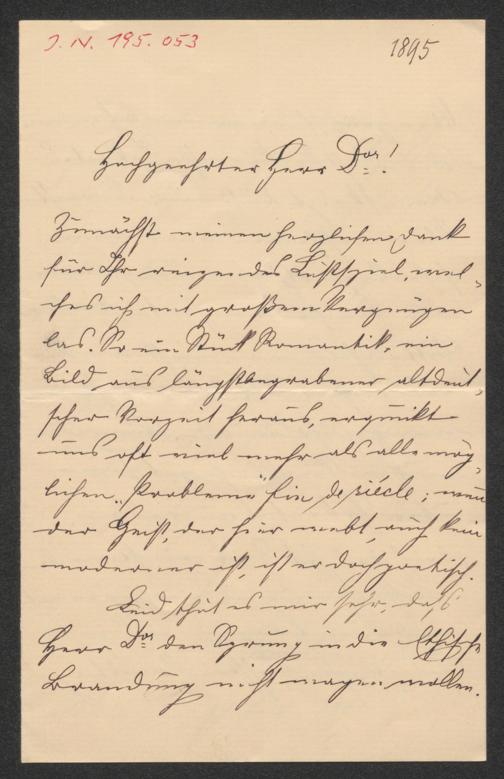 J. N. 195.053
1895
Hochgeehrter Herr Dor!
Zunächst meinen herzlichen Dank
für Ihr reizendes Lustspiel, wel-
ches ich mit großem Vergnügen
las. So ein Stück Romantik, ein
Bild aus längstbegrabener altdeut-
scher Vorzeit heraus, erquickt
uns oft viel mehr als alle mög-
lichen „Probleme" fin de siécle; wenn
der Geist, der hier webt, auch kein
moderner ist, ist er doch poetisch.
Leid thut es mir sehr, daß
Herr Dor den Sprung in die
Brandung nicht wagen wollen.